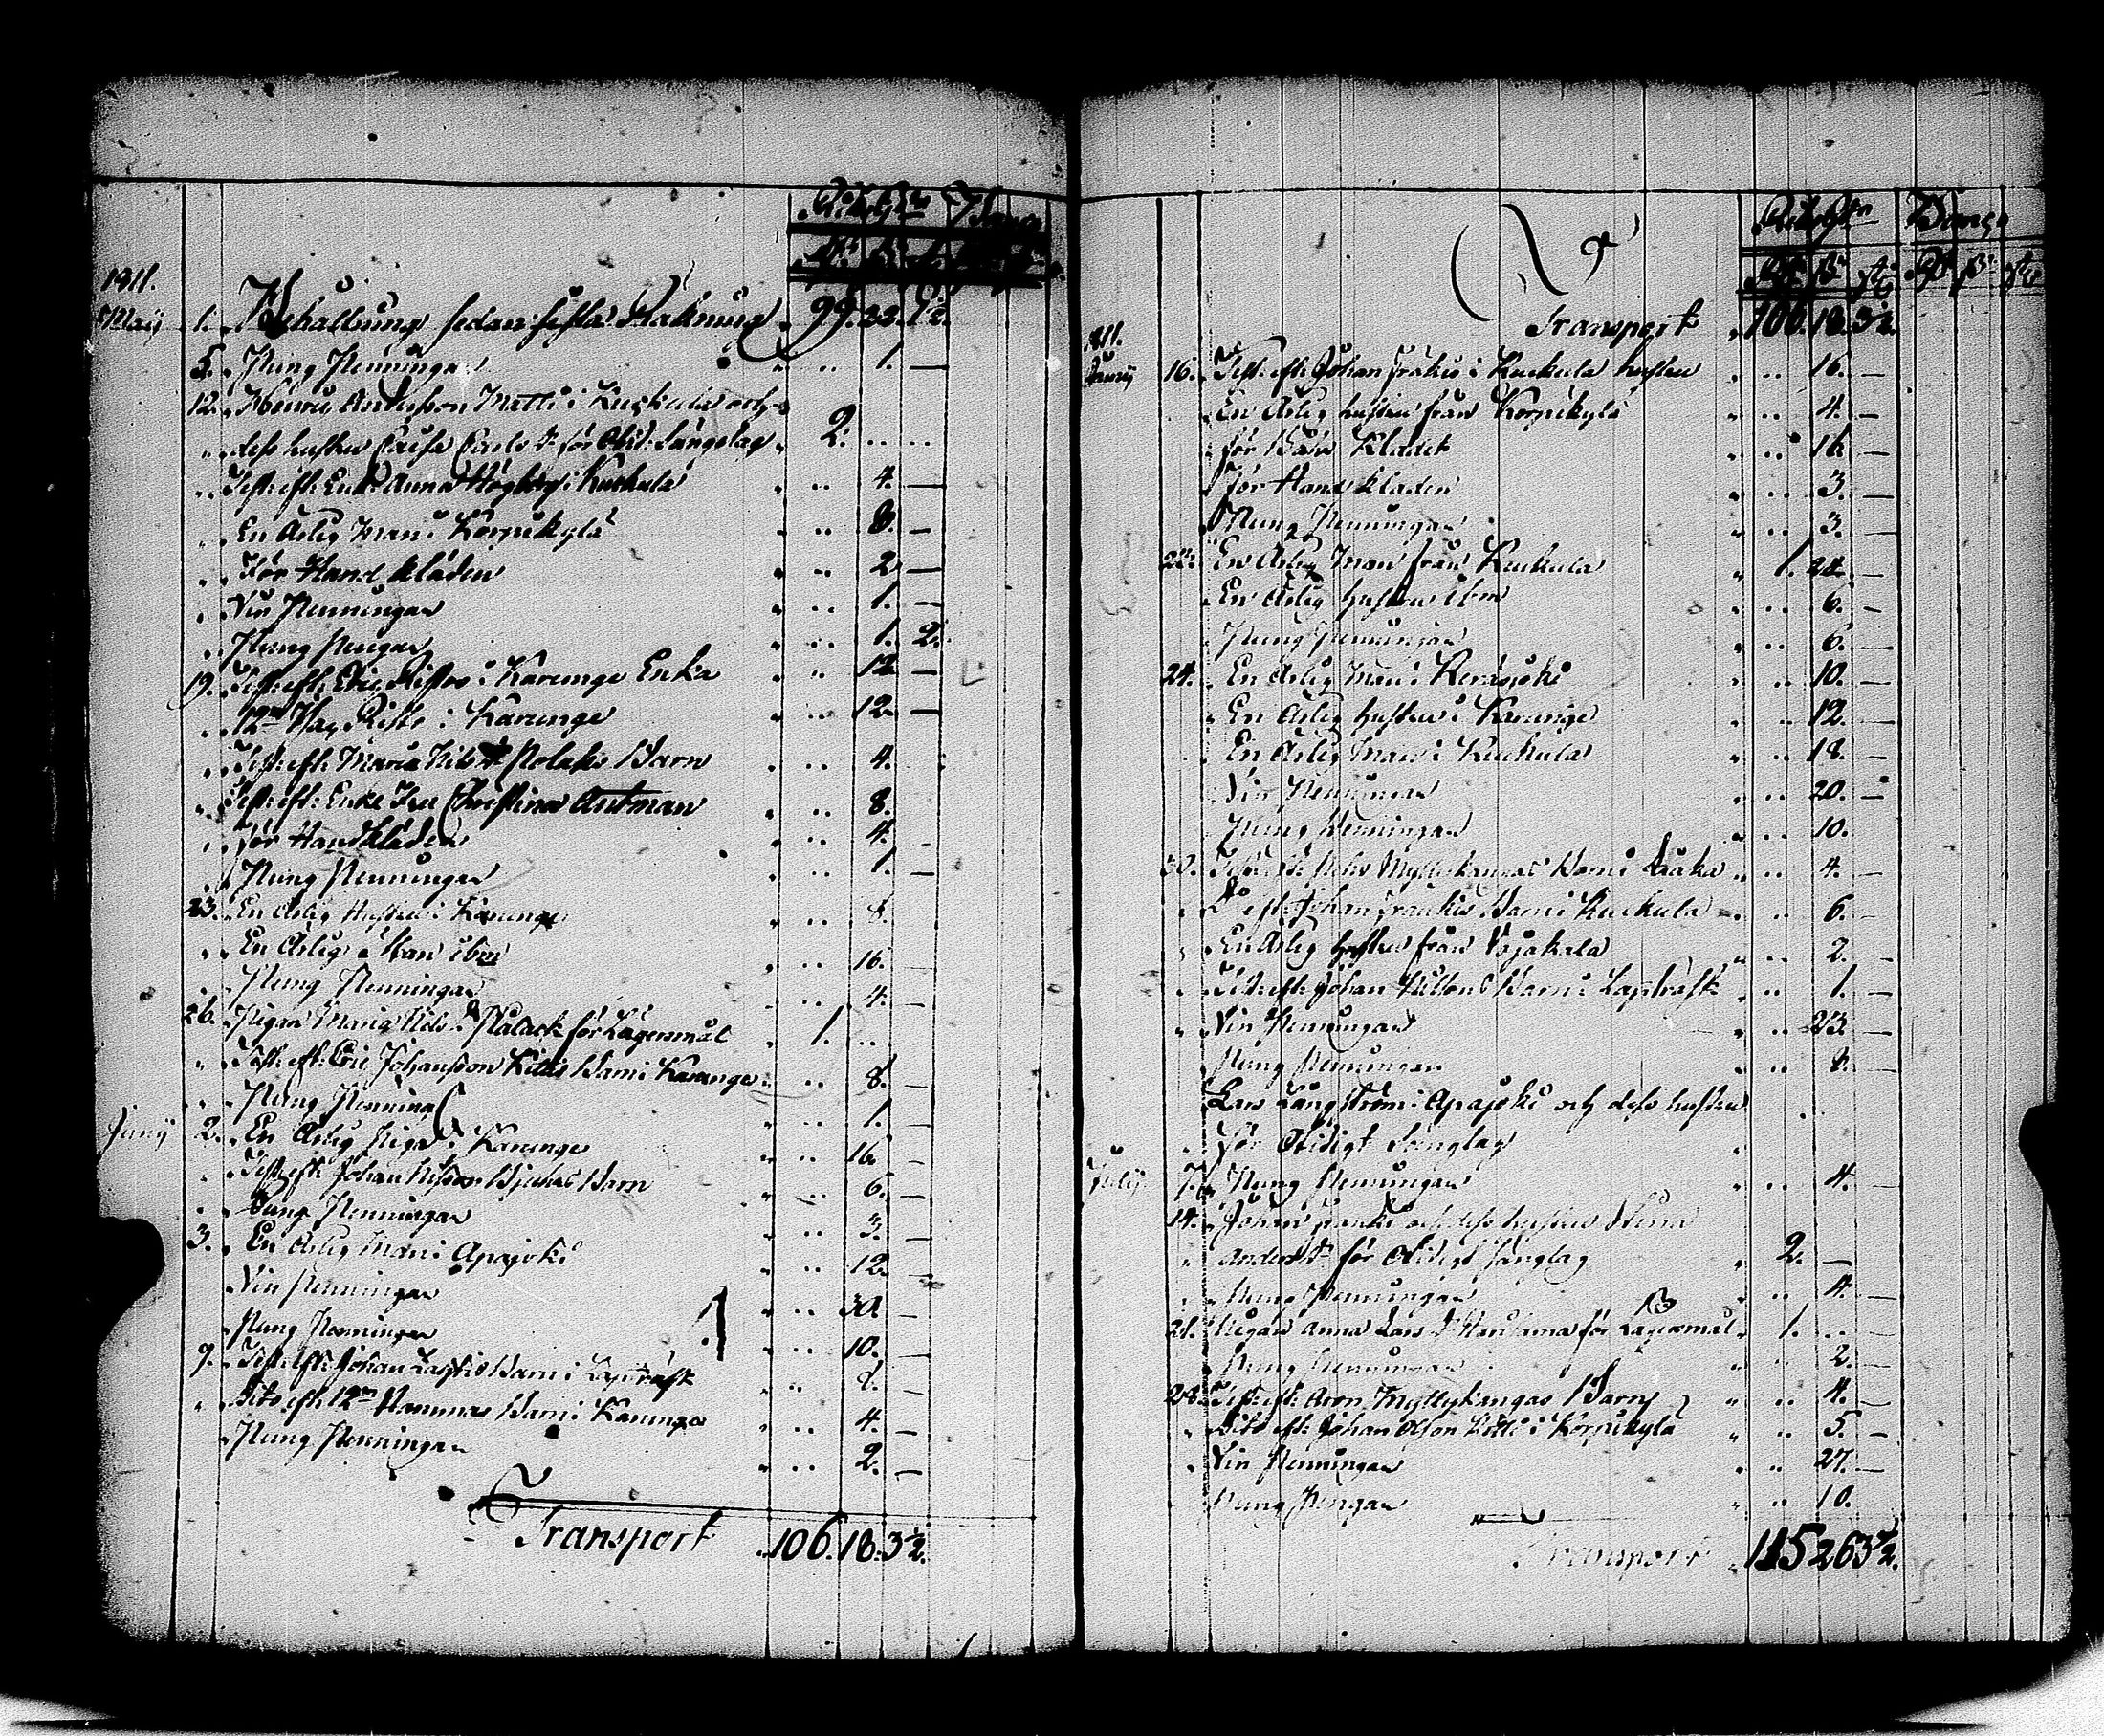 1811.
Maij 1. Behållning sedan sista Räkning 99. 32. 1½.
5. Pung Penningar 1. —
12. Henric Andersson Matti i Kuckula och
dess hustru Caisa Carls Dr för Otid: Sänglag 2. .. ..
Test: eft: Enk: Anna Högberg i Kuckula 4. —
En Ärlig Man i Korpikylä 8. —
För Hand kläden 2. —
Vin Penningar 1. —
Pung Pengar 1. 2.
19. Test: eft: Eric Ristos i Karunge Enka 12 —
i Karunge 12. —
Test: eft: Maria Nils Dr Polakis Barn 4.
Test: eft: Enke Fru Christina Antman 8.
för Handkläden 4.
Pung Penningar 1. —
23. En Ärlig Hustru i Karunge 8.
En Ärlig Man ibm 16. —
Pung Penningar 4. —
26. Pigan Maria Nils Dr Palack för Lägersmål 1. ..
Test: eft: Eric Johansson Kittis Barn i Karunge 8. —
Pung Penningar 1. —
Junij 2. En Ärlig Piga i Karunge 16. —
Test: eft: Johan Nilsson Barn 6. —
Pung Penningar 3. —
3. En Ärlig Man i Apajoki 12. —
Vin Penningar 30. —
Pung Penningar 10. —
9. Test: eft: Johan Barn i Lapträsk 8. —
Dito eft: Barn i Karunge 4. —
Pung Penningar 2. —
Transport 106. 18. 3½.
Transport 106. 18. 3½.
1811.
Junij 16. Test: eft: Johan Frakis i Kuckula hustru 16. —
En Ärlig hustru från Korpikylä 4. —
för Bår Klädet 16. —
För Hand kläden 3. —
Pung Penningar 3. —
22. En Ärlig Man från Kuckula 1. 24. —
En Ärlig hustru ibm 6. —
Pung Penningar 6. —
24. En Ärlig Man i 10. —
En Ärlig hustru i Karunge 12. —
En Ärlig Man i Kuckula 18. —
Vin Penningar 20. —
Pung Penningar 10. —
30. Test: eft: Nils Myllykangas Barn i 4. —
Do eft: Johan Frankis Barn i Kuckula 6. —
En Ärlig hustru från Vojakala 2. —
Test: eft: Johan Barn i Lapträsk 1. —
Vin Penningar 23. —
Pung Penningar 8. —
Lars Långström i Apajoki och dess hustru
för Otidigt Sänglag
Julij 7. Pung Penningar 4. —
14. Johan Franki och dess hustru
Anders Dr för Otidigt sänglag 2. —
Pung Penningar 4. —
21. Pigan Anna Lars Dr för Lägersmål 1. .. —
Pung Penningar 2. —
28. Test: eft: Aron Myllykangas Barn 4. —
Dito eft: Johan Olsson Kitti i Korpikylä 5. —
Vin Penningar 27. —
Pung Pengar 10.
Transport 115 26 3½.